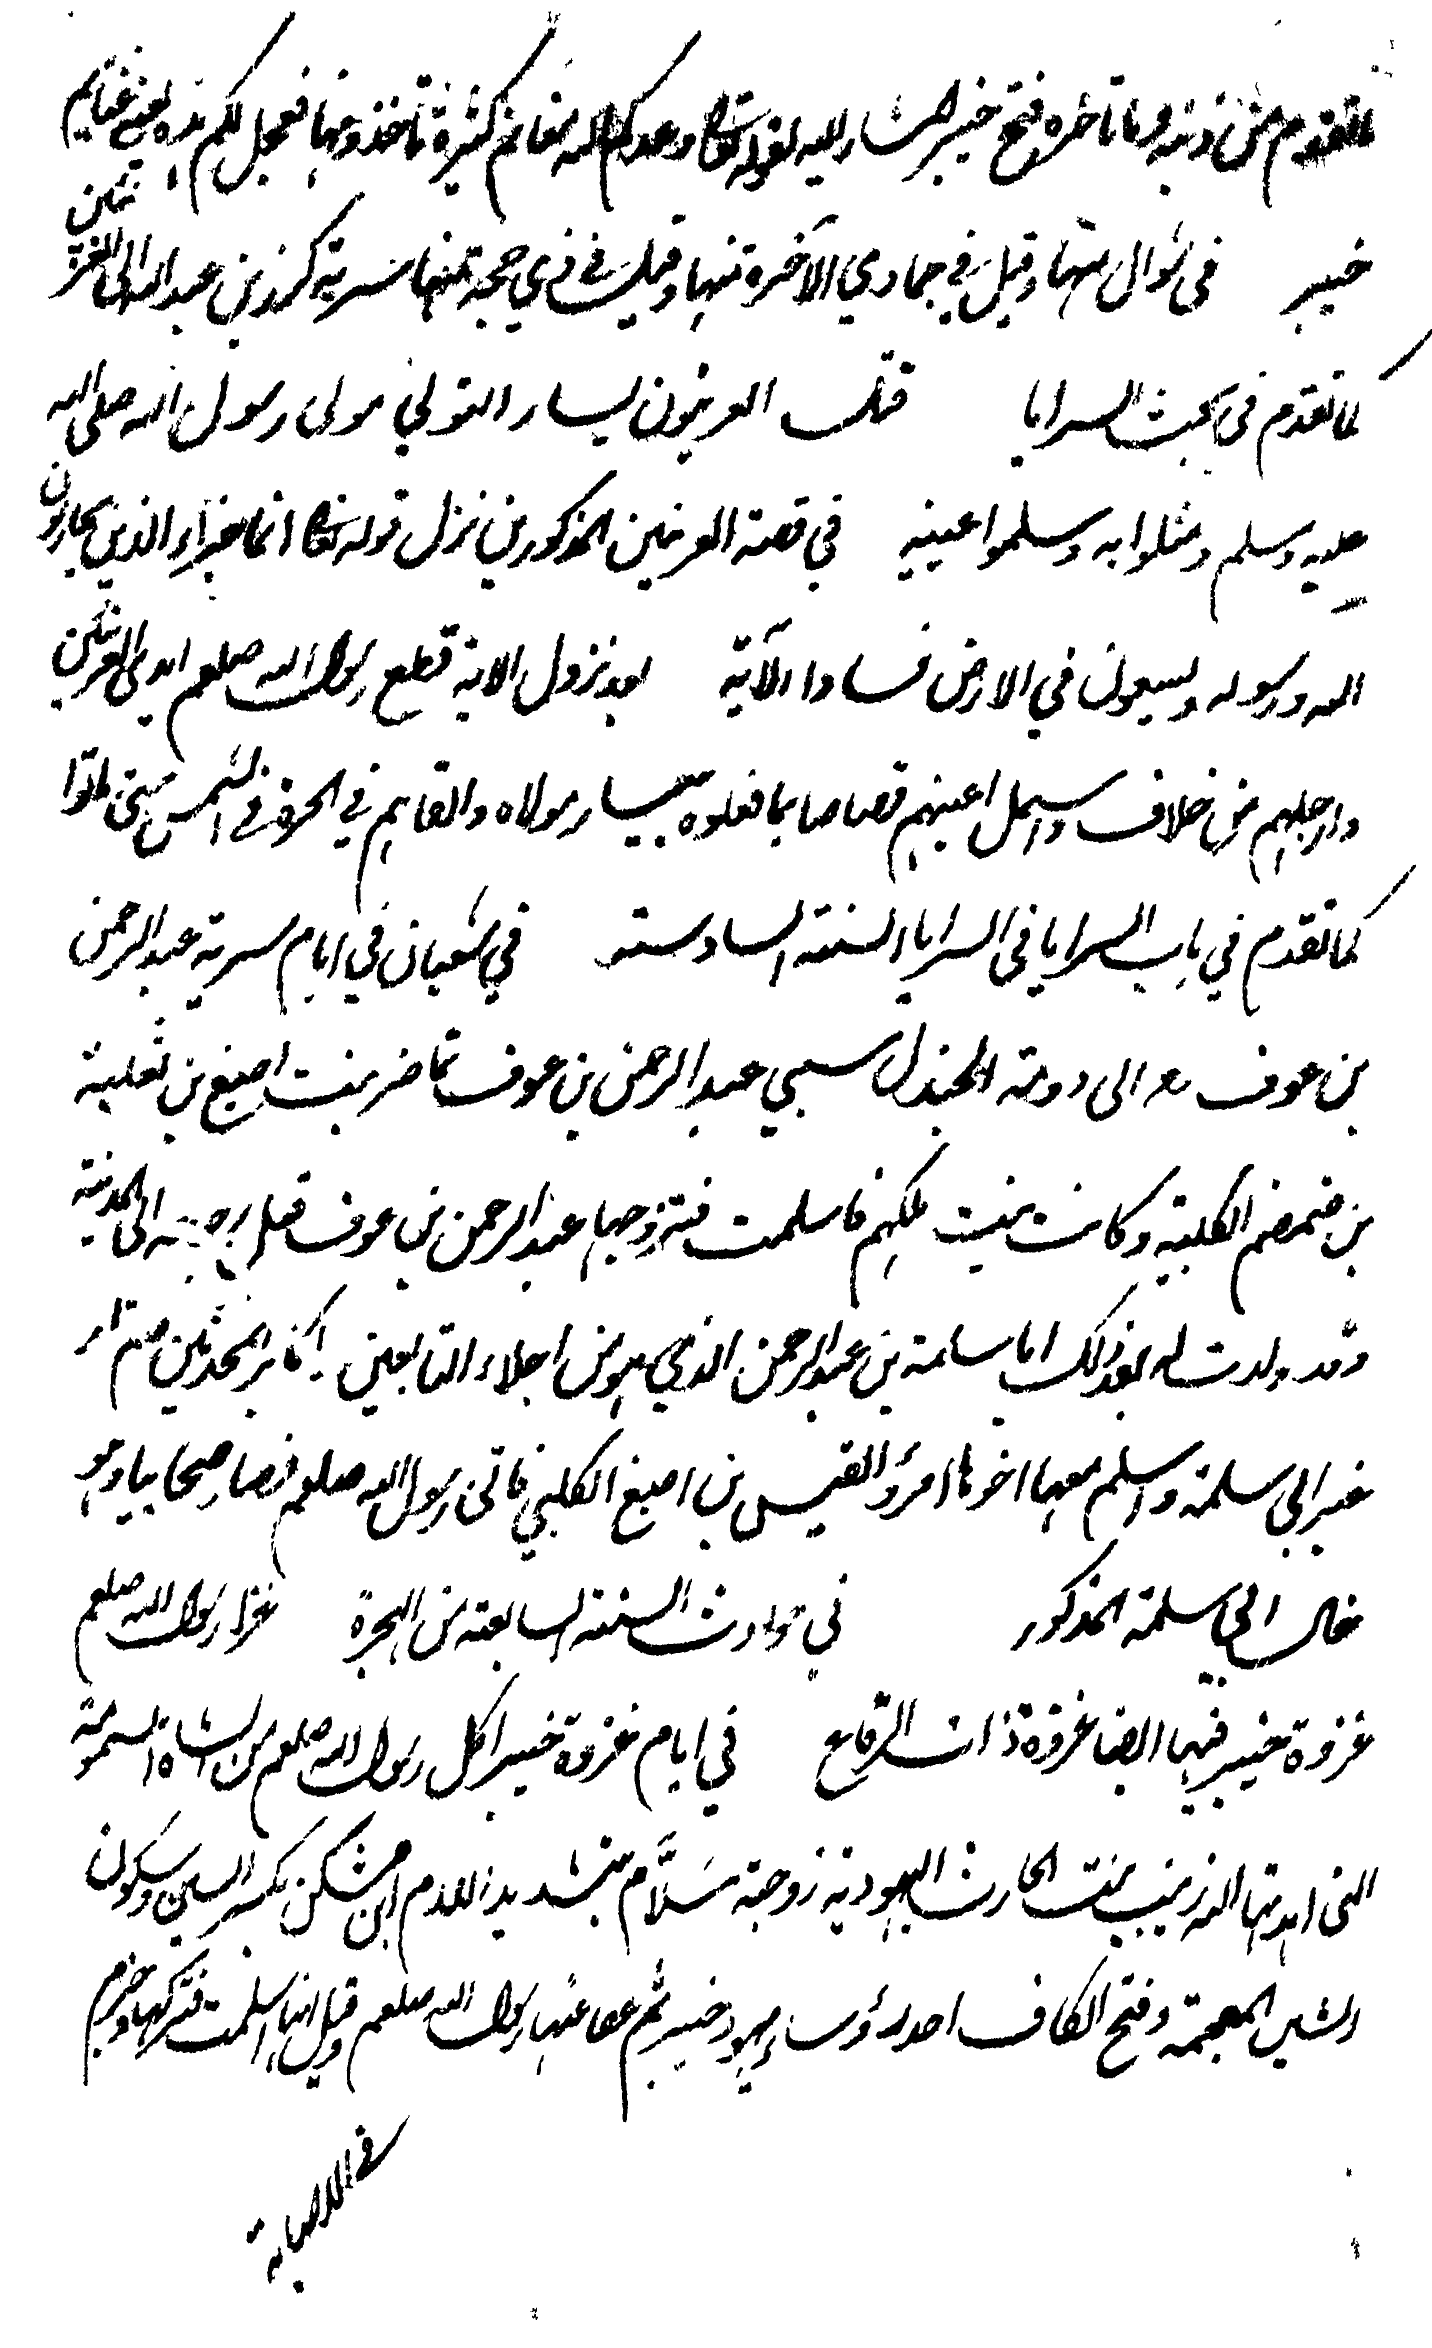 ما تقدم من ذنبه وما تاخر وفتح خيبر المشار اليه بقوله تعالى وعدكم الله مغانم كثيرة تأخذونها فعجل لكم هذه يعني غنايم
خيبر في شوال منها وقيل في جمادي الآخرة منها وقيل في ذي حجة منها سرية كرز بن عبد الله الى العرنيين
كما تقدم في بحث السرايا قتل العرنيون يسار النوبي مولى رسول الله صلى الله
عليه وسلم ومثلوا به وسلموا عينيه في قصة العرنيين المذكورين نزل قوله تعالى انما جزاء الذين يحاربون
الله ورسوله ويسعون في الارض فسادا الآية بعد نزول الاية قطع رسول الله صلعم ايدى العرنيين
وارجلهم من خلاف واسمل اعينهم قصاصا بما فعلوه بيسار مولاه والقاهم في الحرة في الشمس حتى ماتوا
كما تقدم في باب السرايا في السرايا السنة السادسة في شعبان في ايام سرية عبد الرحمن
بن عوف رضه الى دومة الجندل سبي عبد الرحمن بن عوف تماضر بنت اصبغ بن ثعلبة
بن ضمضم الكلبية وكانت بنت ملكهم فاسلمت فتزوجها عبد الرحمن بن عوف قبل رجعته الى المدينة
وقد ولدت له بعد ذلك ابا سلمة بن عبد الرحمن الذي هو من اجلاء التابعين اكابر المحدثين
غير ابي سلمة واسلم معها اخوها امرؤ القيس بن اصبغ الكلبي فاتى رسول الله صلعم فصار صحابيا وهو
خال ابي سلمة المذكور في حوادث السنة السابعة من الهجرة غزا رسول الله صلعم
غزوة خيبر فيها ايضا غزوة ذات الرقاع في ايام غزوة خيبر اكل رسول الله صلعم من الشاة المسمومة
التي اهدتها له زينب بنت الحارث اليهودية زوجة سَلَّام بتشديد اللام ابن مشكن بكسر السين وسكون
الشين المعجمة وفتح الكاف احد رؤساء يهود خيبر ثم عفا عنها رسول الله صلعم وقيل انها اسلمت فتركها وجزم
في الاصابة